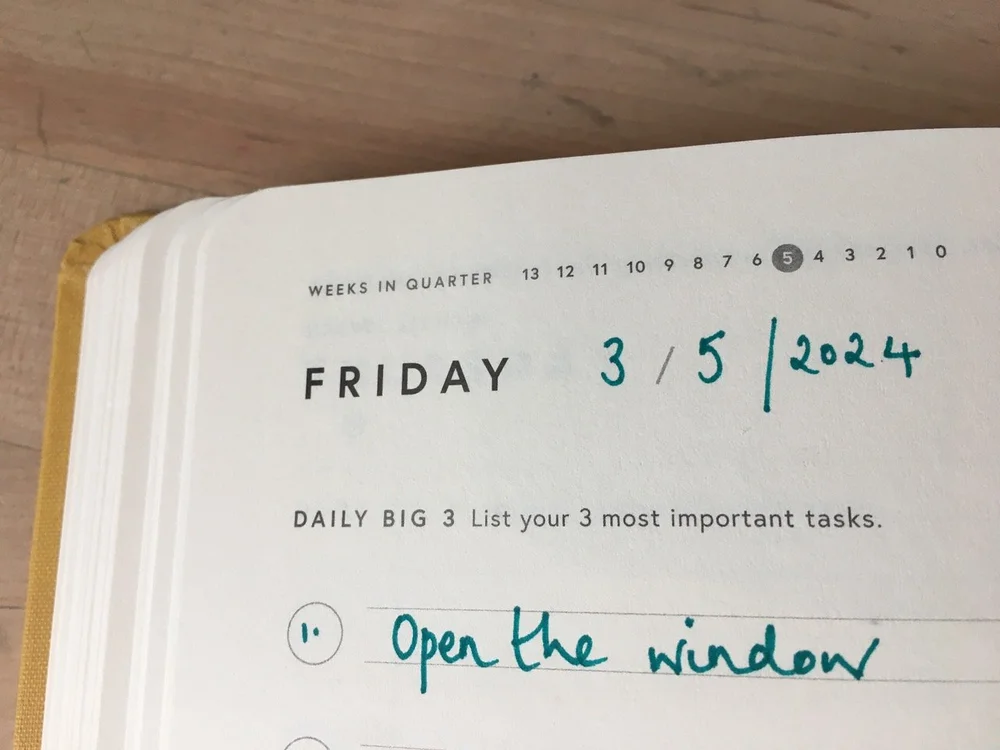 WEEKS IN QUARTER 13 12 11 10 9 8 7 6 5 4 3 2 1 0
FRIDAY 3 / 5 / 2024
DAILY BIG 3 List your 3 most important tasks.
1. Open the window